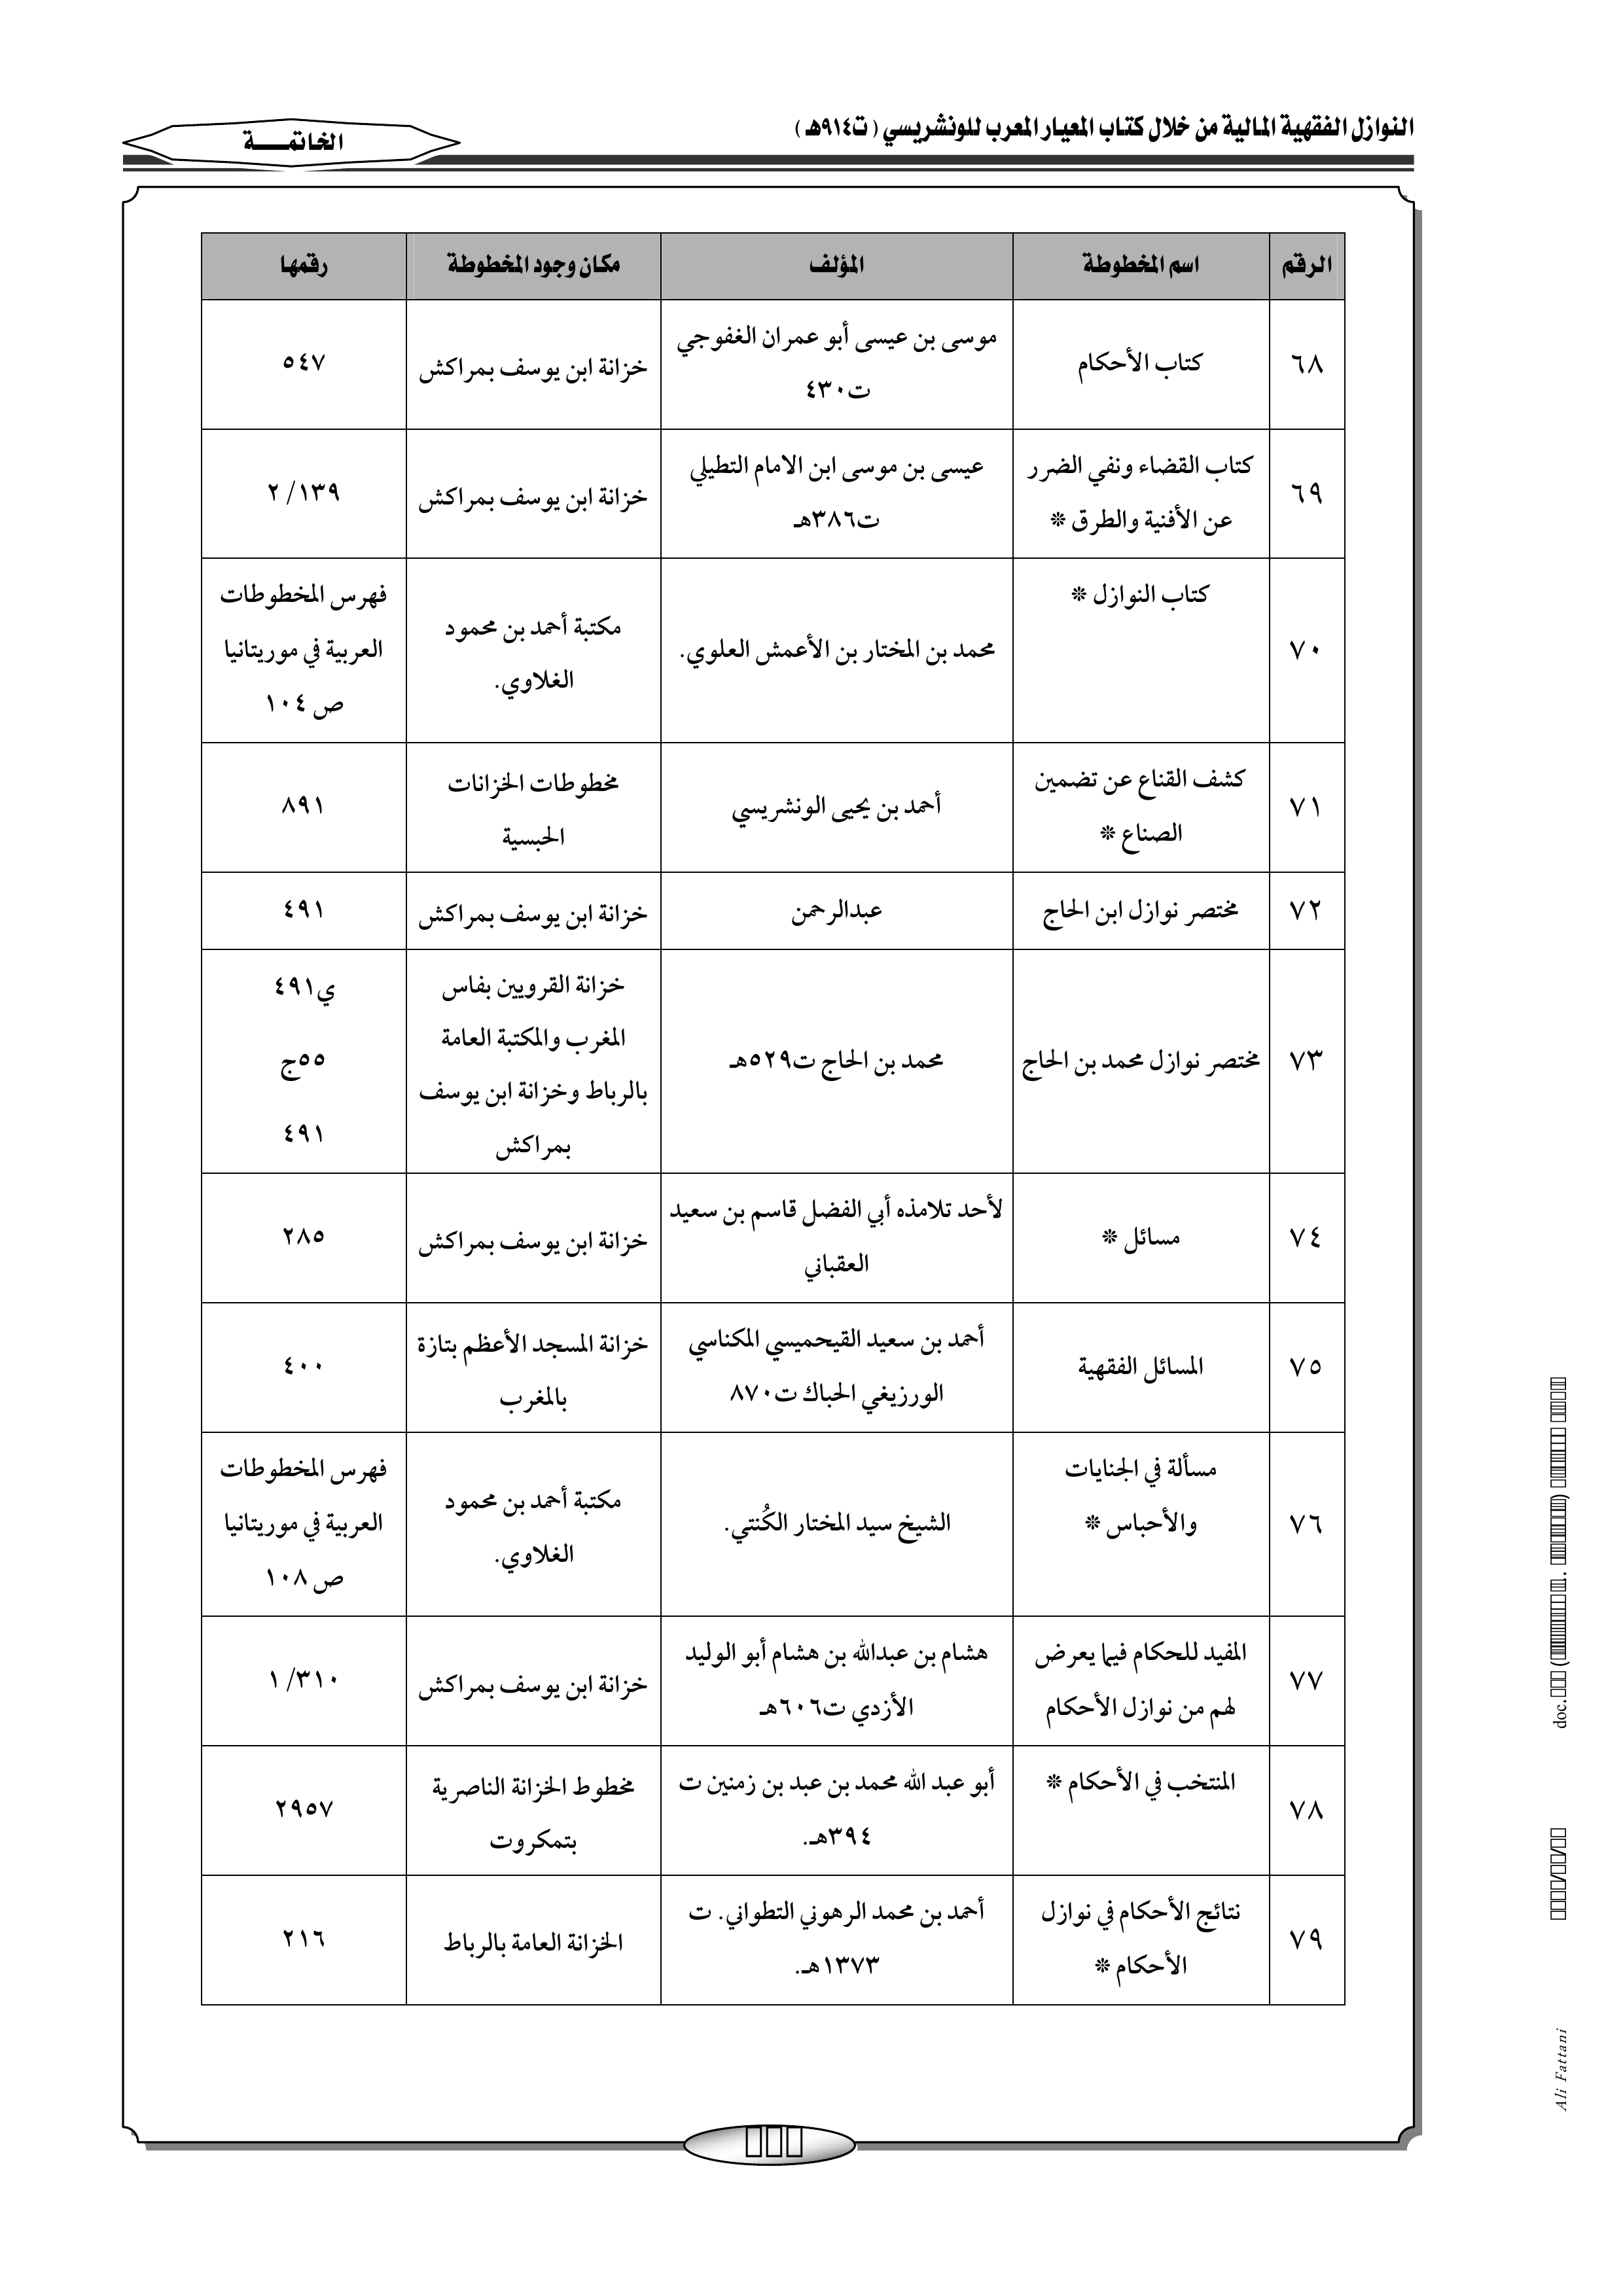 النوازل الفقهية المالية من خلال كتاب المعيار المعرب للونشريسي ( ت٩١٤هـ )
الخاتمـــــة
الرقم اسم المخطوطة المؤلف مكان وجود المخطوطة رقمها
٦٨
كتاب الأحكام
موسى بن عيسى أبو عمران الغفوجي
ت٤٣٠
خزانة ابن يوسف بمراكش
٥٤٧
٦٩
كتاب القضاء ونفي الضرر
عن الأفنية والطرق *
عيسى بن موسى ابن الامام التطيلي
ت٣٨٦هـ
خزانة ابن يوسف بمراكش
١٣٩/ ٢
٧٠
كتاب النوازل *
محمد بن المختار بن الأعمش العلوي.
مكتبة أحمد بن محمود
الغلاوي.
فهرس المخطوطات
العربية في موريتانيا
ص ١٠٤
٧١
كشف القناع عن تضمين
الصناع *
أحمد بن يحيى الونشريسي
مخطوطات الخزانات
الحبسية
٨٩١
٧٢
مختصر نوازل ابن الحاج
عبدالرحمن
خزانة ابن يوسف بمراكش
٤٩١
٧٣
مختصر نوازل محمد بن الحاج
محمد بن الحاج ت٥٢٩هـ
خزانة القرويين بفاس
المغرب والمكتبة العامة
بالرباط وخزانة ابن يوسف
بمراكش
ي٤٩١
٥٥ج
٤٩١
٧٤
مسائل *
لأحد تلامذه أبي الفضل قاسم بن سعيد
العقباني
خزانة ابن يوسف بمراكش
٢٨٥
٧٥
المسائل الفقهية
أحمد بن سعيد القيحميسي المكناسي
الورزيغي الحباك ت٨٧٠
خزانة المسجد الأعظم بتازة
بالمغرب
٤٠٠
٧٦
مسألة في الجنايات
والأحباس *
الشيخ سيد المختار الكُنتي.
مكتبة أحمد بن محمود
الغلاوي.
فهرس المخطوطات
العربية في موريتانيا
ص ١٠٨
٧٧
المفيد للحكام فيما يعرض
لهم من نوازل الأحكام
هشام بن عبدالله بن هشام أبو الوليد
الأزدي ت٦٠٦هـ
خزانة ابن يوسف بمراكش
٣١٠/ ١
٧٨
المنتخب في الأحكام *
أبو عبد الله محمد بن عبد بن زمنين ت
٣٩٤هـ.
مخطوط الخزانة الناصرية
بتمكروت
٢٩٥٧
٧٩
نتائج الأحكام في نوازل
الأحكام *
أحمد بن محمد الرهوني التطواني. ت
١٣٧٣هـ.
الخزانة العامة بالرباط
٢١٦
doc.
Ali Fattani